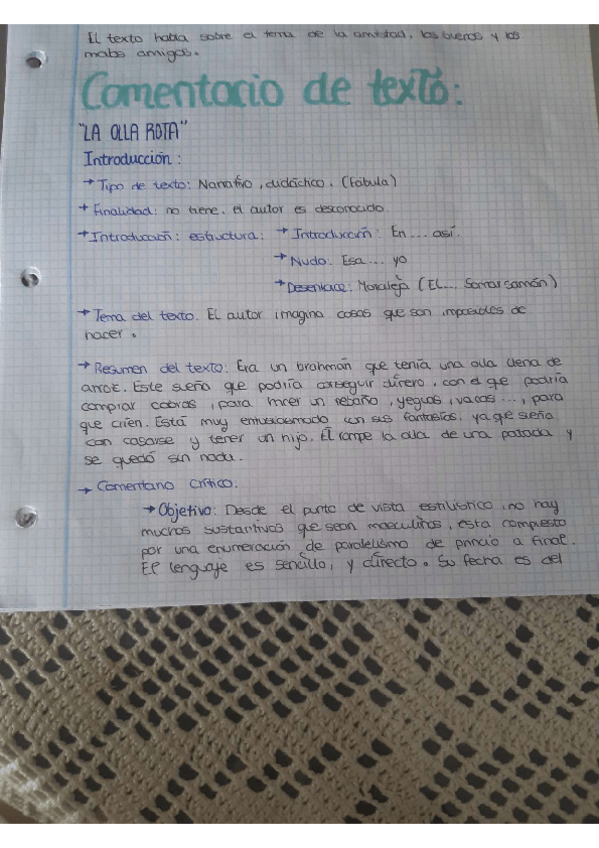 El texto habla sobre el tema de la amistad, los buenos y los
malos amigos.
Comentario de texto:
"LA OLLA ROTA"
Introducción:
→ Tipo de texto: Narrativo, didáctico. (Fábula)
→ Finalidad: no tiene, el autor es desconocido.
→ Introducción: estructura: → Introducción: En ... así.
→ Nudo: Esa ... yo
→ Desenlace: Moraleja (El ... Somarsamón)
→ Tema del texto. El autor imagina cosas que son imposibles de
hacer.
→ Resumen del texto: Era un brahmán que tenía una olla llena de
arroz. Este sueña que podría conseguir dinero, con el que podría
comprar cabras, para hacer un rebaño, yeguas, vacas ..., para
que críen. Está muy entusiasmado con sus fantasías, ya que sueña
con casarse y tener un hijo. Él rompe la olla de una patada y
se quedó sin nada.
→ Comentario Crítico.
→ Objetivo: Desde el punto de vista estilístico, no hay
muchos sustantivos que sean masculinos, esta compuesto
por una enumeración de paralelismo de princio a final.
El lenguaje es sencillo, y directo. Su fecha es del